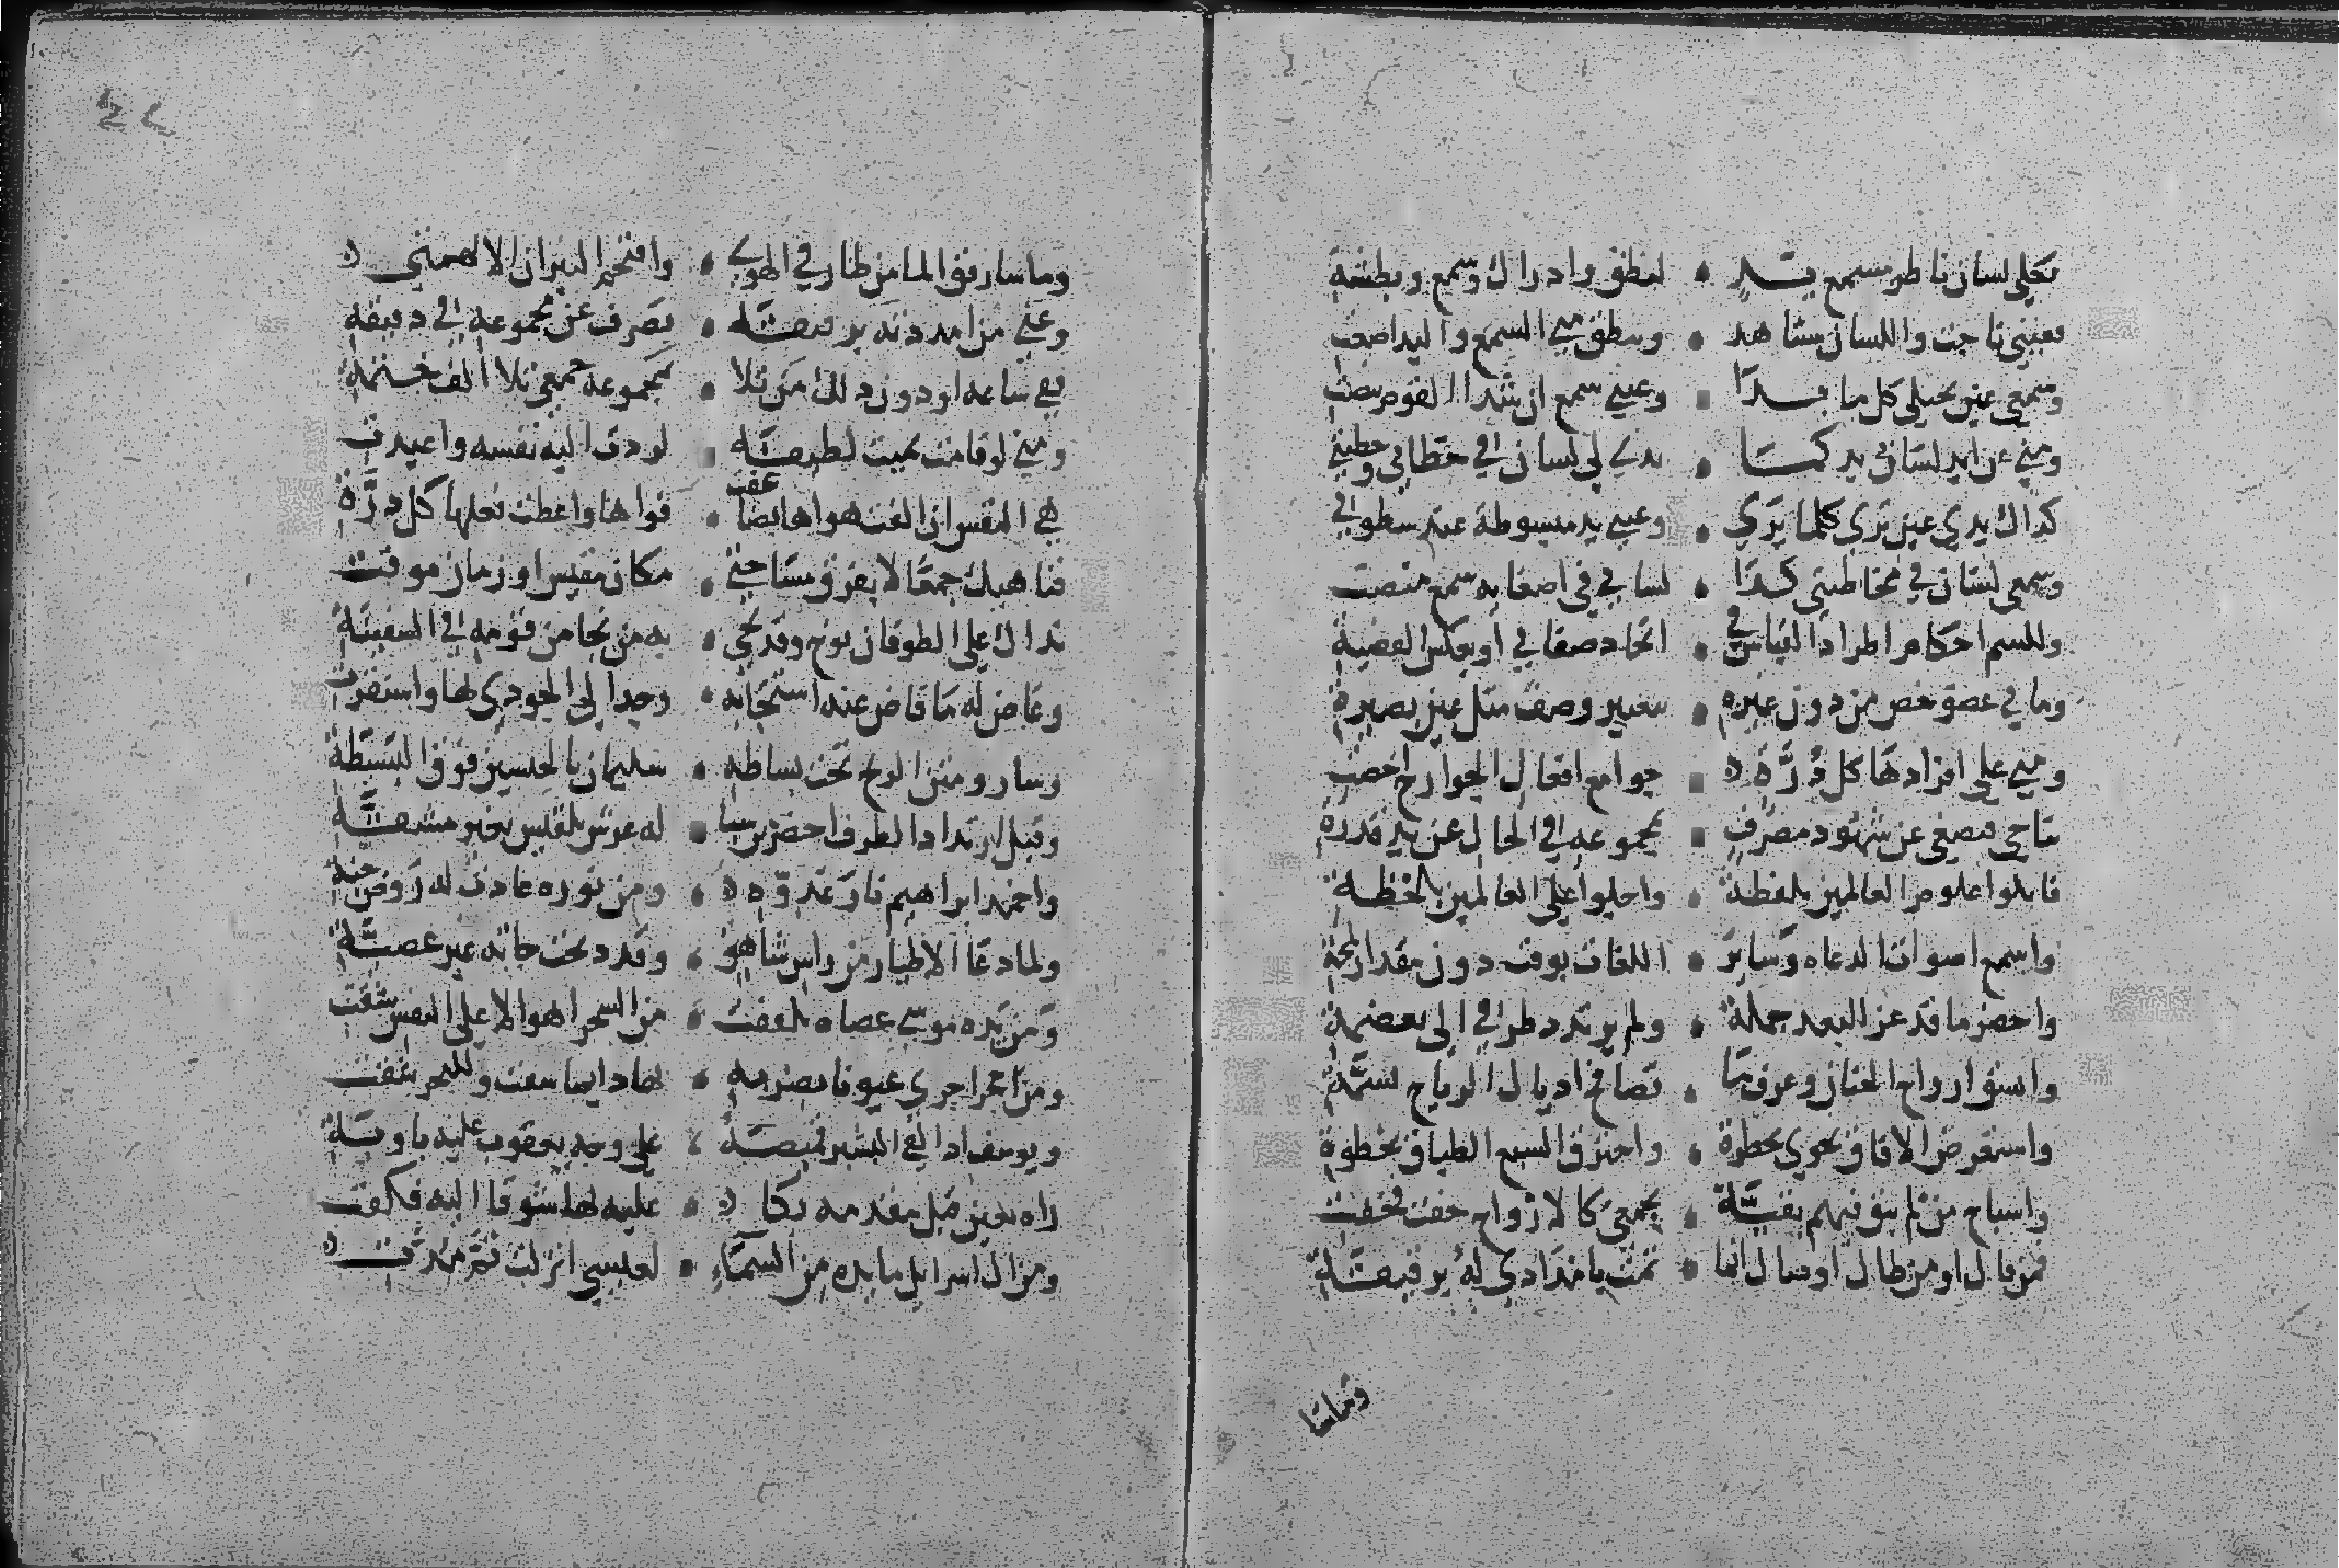 فكلي لسان ناظر مسمع يد • لنطق وادراك وسمع وبطشة
فعيني ناجت واللسان مشاهد • وينطق مني السمع واليد اصغت
وسمعي عين تجتلي كل ما بدا • وعيني سمع ان شدا القوم تنصت
ومني عن ايد لساني يد كما • يدي لي لسان في خطابي وخطبتي
كذاك يدي عين تري كلما يري • وعيني يد مبسوطة عند سطوتي
وسمعي لسان في مخاطبتي كذا • لساني في اصغايه سمع منصت
وللشم احكام اطراد القياس في • اتحاد صفاتي او بعكس القضية
وما في عضو خص من دون غيره • بتعيين وصف مثل عين بصيرة
ومني علي افرادها كل ذرة • جوامع افعال الجوارح احصت
يناجي ويصغي عن شهود مصرف • بمجموعه في الحال عن يد قدرة
فاتلوا علوم العالمين بلفظة • واجلوا علي العالمين بلحظة
واسمع اصوات الدعاه وساير • اللغات بوقت دون مقدار لمحة
واحضر ما قد عز البعد حمله • ولم يرتدد طرفي الي بغمضة
وانشق ارواح الجنان وعرف ما • تصافح اذيال الرياح بنسمة
واستعرض الافاق نحوي بخطرة • واخترق السبع الطباق بخطوة
واشباح من لم تبق فيهم بقية • بجمعي كالارواح خفت فخفت
فمن قال او من طال او صال انما • تمت بامدادي له برقيقة
وما سا
وما سار فوق الما من طار في الهوي • واقتحم النيران الا بهمتي
وعني من امددته برقيقة • تصرف عن مجموعه في دقيقة
في ساعه او دون ذلك من تلا • بمجموعه جمعي تلا الف ختمة
ومني لو قامت بميت لطيفة • لردت اليه نفسه واعيدت
هي النفس ان القت هواها تضاعفت • قواها واعطت فعلها كل ذرة
فناهيك جمعا لا بفرق مساحتي • مكان مقيس او زمان موقت
بذاك علي الطوفان نوح وقد نجي • به من نجا من قومه في السفينة
وغاض له ما فاض عنه استجابه • وجد الي الجودي بها واستقرت
وسار ومتن الريح تحت بساطه • سليمان بالجيشين فوق البسيطة
وقبل ارتداد الطرف احضر من سبا • له عرش بلقيس بغير مشقة
واخمد ابراهيم نار عدوه • ومن نوره عادت له روض جنة
ولما دعا الاطيار من راس شاهق • وقد ذبحت جاته غير عصية
ومن يده موسي عصاه تلقفت • من السحر اهوالا علي النفس شقت
ومن حجر اجري عيونا بضربه • بها دايما سقت وللبحر شقت
ويوسف اذ القي البشير قميصه • علي وجه يعقوب عليه باوبة
راه بعين قبل مقدمه بكا • عليه بها شوقا اليه فكفت
ومن ال اسرايل مايده من السماء • لعيسي انزلت ثم مدت